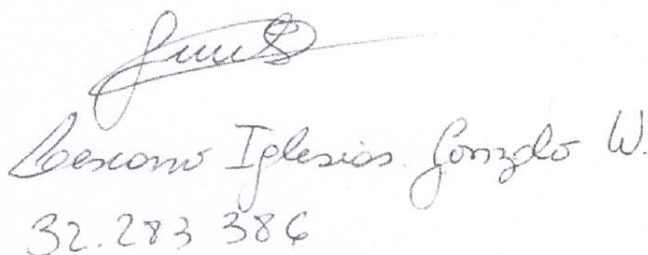 Lescano Iglesias Gonzalo W.
32.283 386